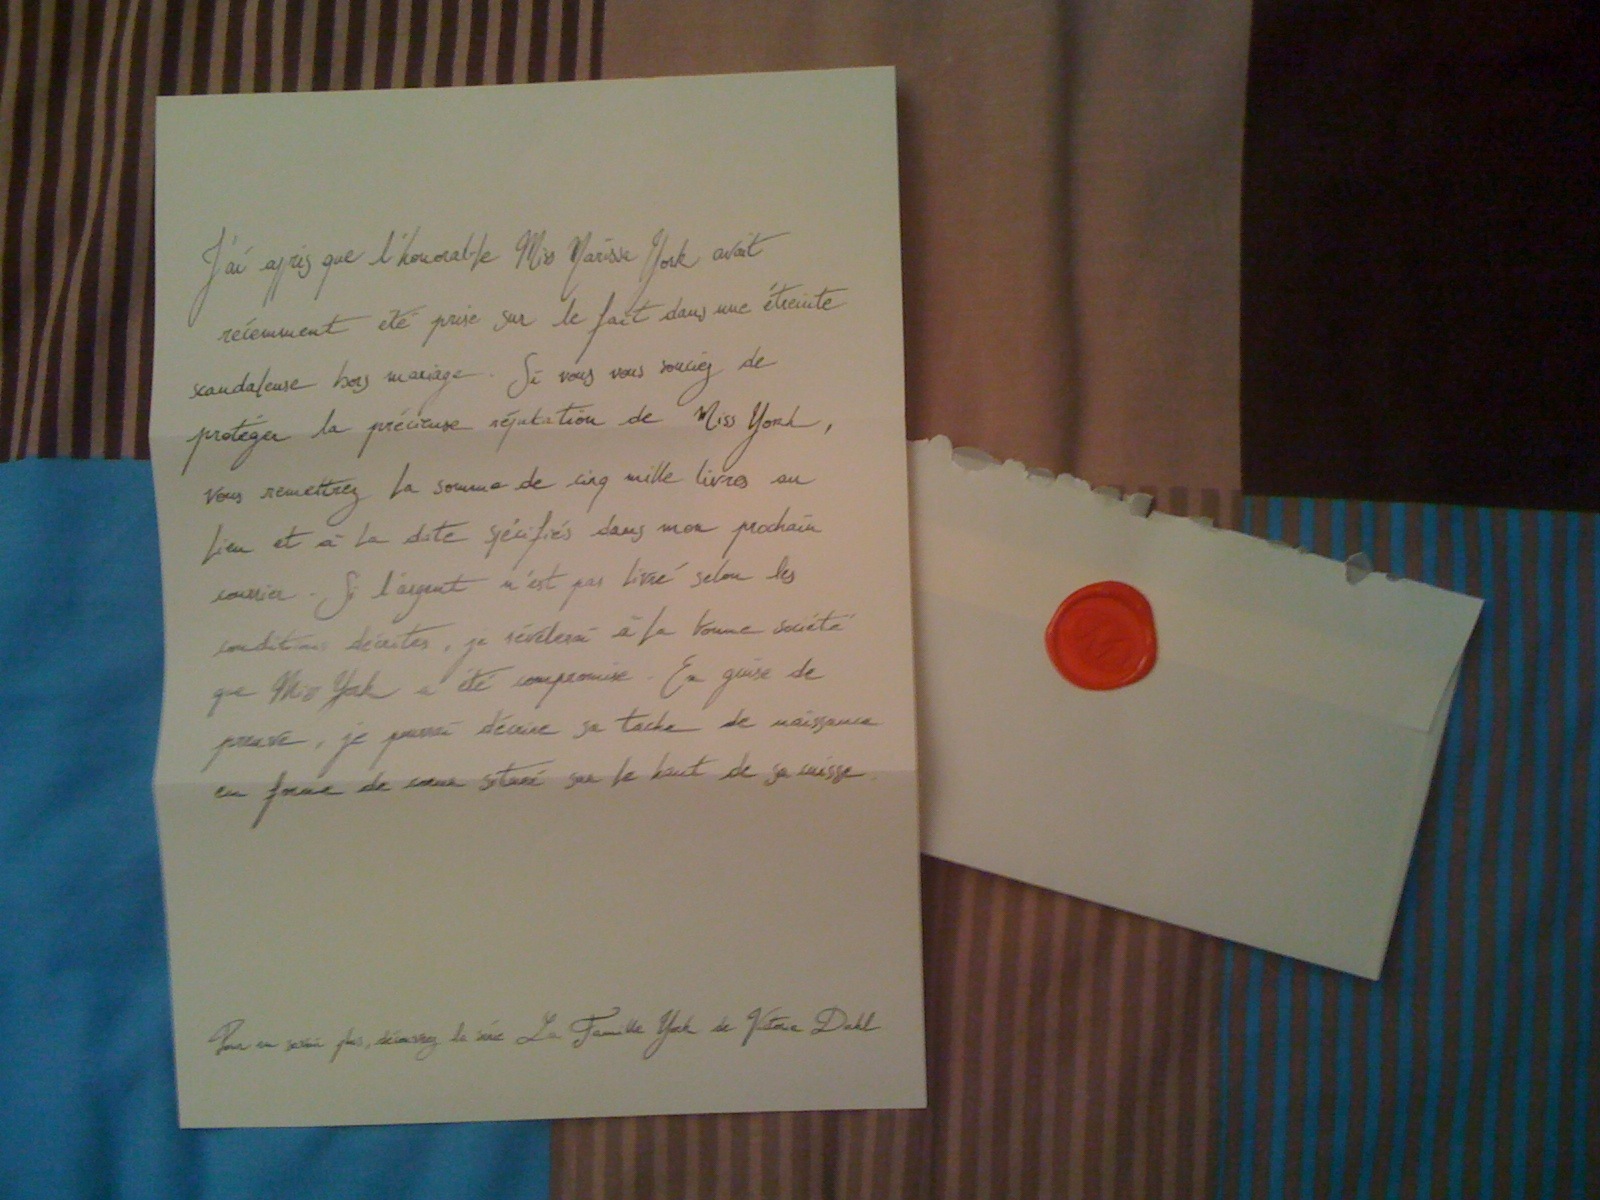 J'ai appris que l'honorable Miss Marissa York avait
récemment été prise sur le fait dans une étreinte
scandaleuse hors mariage. Si vous vous souciez de
protéger la précieuse réputation de Miss York,
vous remettrez la somme de cinq mille livres au
lieu et à la date spécifiés dans mon prochain
courrier. Si l'argent n'est pas livré selon les
conditions décrites, je révélerai à la bonne société
que Miss York a été compromise. En guise de
preuve, je pourrai décrire sa tache de naissance
en forme de cœur située sur le haut de sa cuisse.
Pour en savoir plus, découvrez la série La Famille York de Victoria Dahl